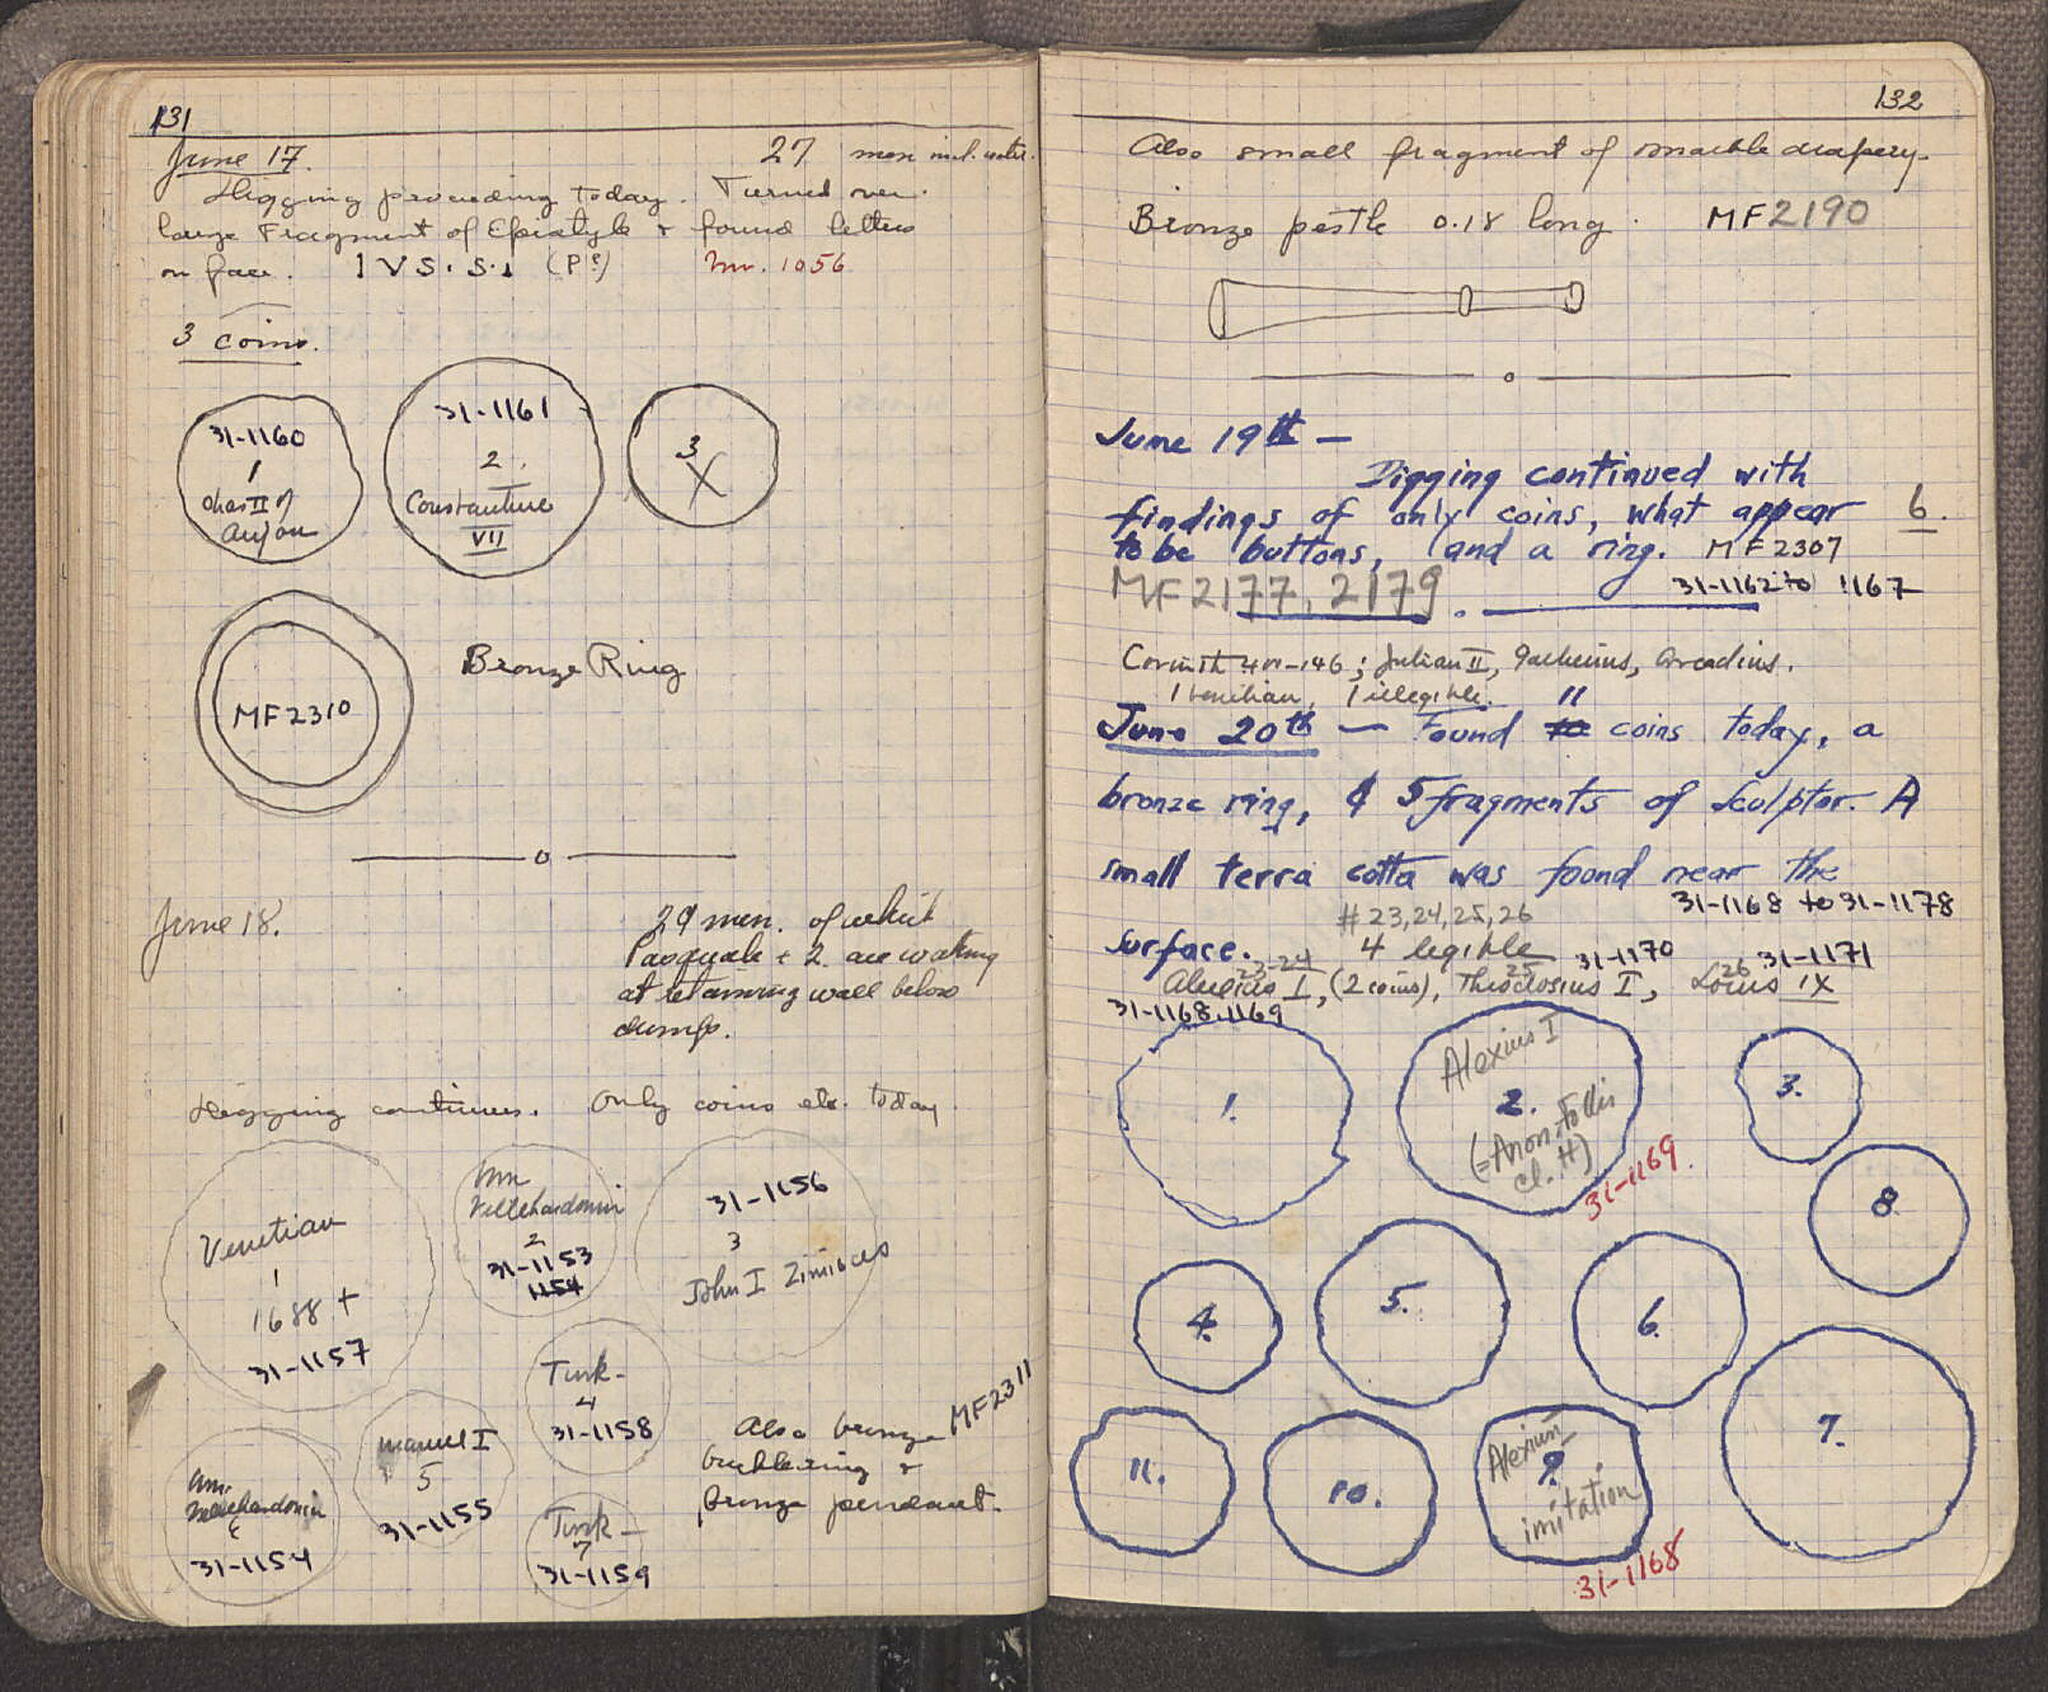 131
June 17. 27 men incl. water.
Digging proceeding today. Turned over
large Fragment of Epistyle + found letters
on face. I V S . S . I (P?) Inv. 1056
3 coins.
31-1160
1
Chas II of
Anjou
31-1161
2.
Constantine
VII
3
X
MF2310
Bronze Ring
June 18.
29 men. of which
Pasquale + 2 are working
at retaining wall below
dumps.
Digging continues. Only coins etc. today.
Venetian
1
1688 +
31-1157
Wm
Villehardouin
2
31-1153
1154
31-1156
3
John I Zimisces
Turk-
4
31-1158
Manuel I
5
31-1155
Wm.
Villehardouin
31-1154
Turk-
7
31-1159
Also bronze MF2311
buckle ring +
bronze pendant.
132
Also small fragment of marble drapery.
Bronze pestle 0.18 long. MF2190
June 19th —
Digging continued with
findings of only coins, what appear 6.
to be buttons, and a ring. MF2307
MF2177, 2179. 31-1162 to 1167
Corinth 400-146; Julian II, Gallienus, Arcadius.
1 Venetian, 1 illegible.
11
June 20th — Found 10 coins today, a
bronze ring, & 5 fragments of sculptor. A
small terra cotta was found near the
#23,24,25,26 31-1168 to 31-1178
surface. 4 legible 31-1170 31-1171
23-24 25 26
Alexius I, (2 coins), Theodosius I, Louis IX
31-1168,1169
1.
Alexius I
2.
(=Anon. Follis
cl. H)
31-1169.
3.
8
4.
5.
6.
7.
11.
10.
Alexius I
9.
imitation
31-1168